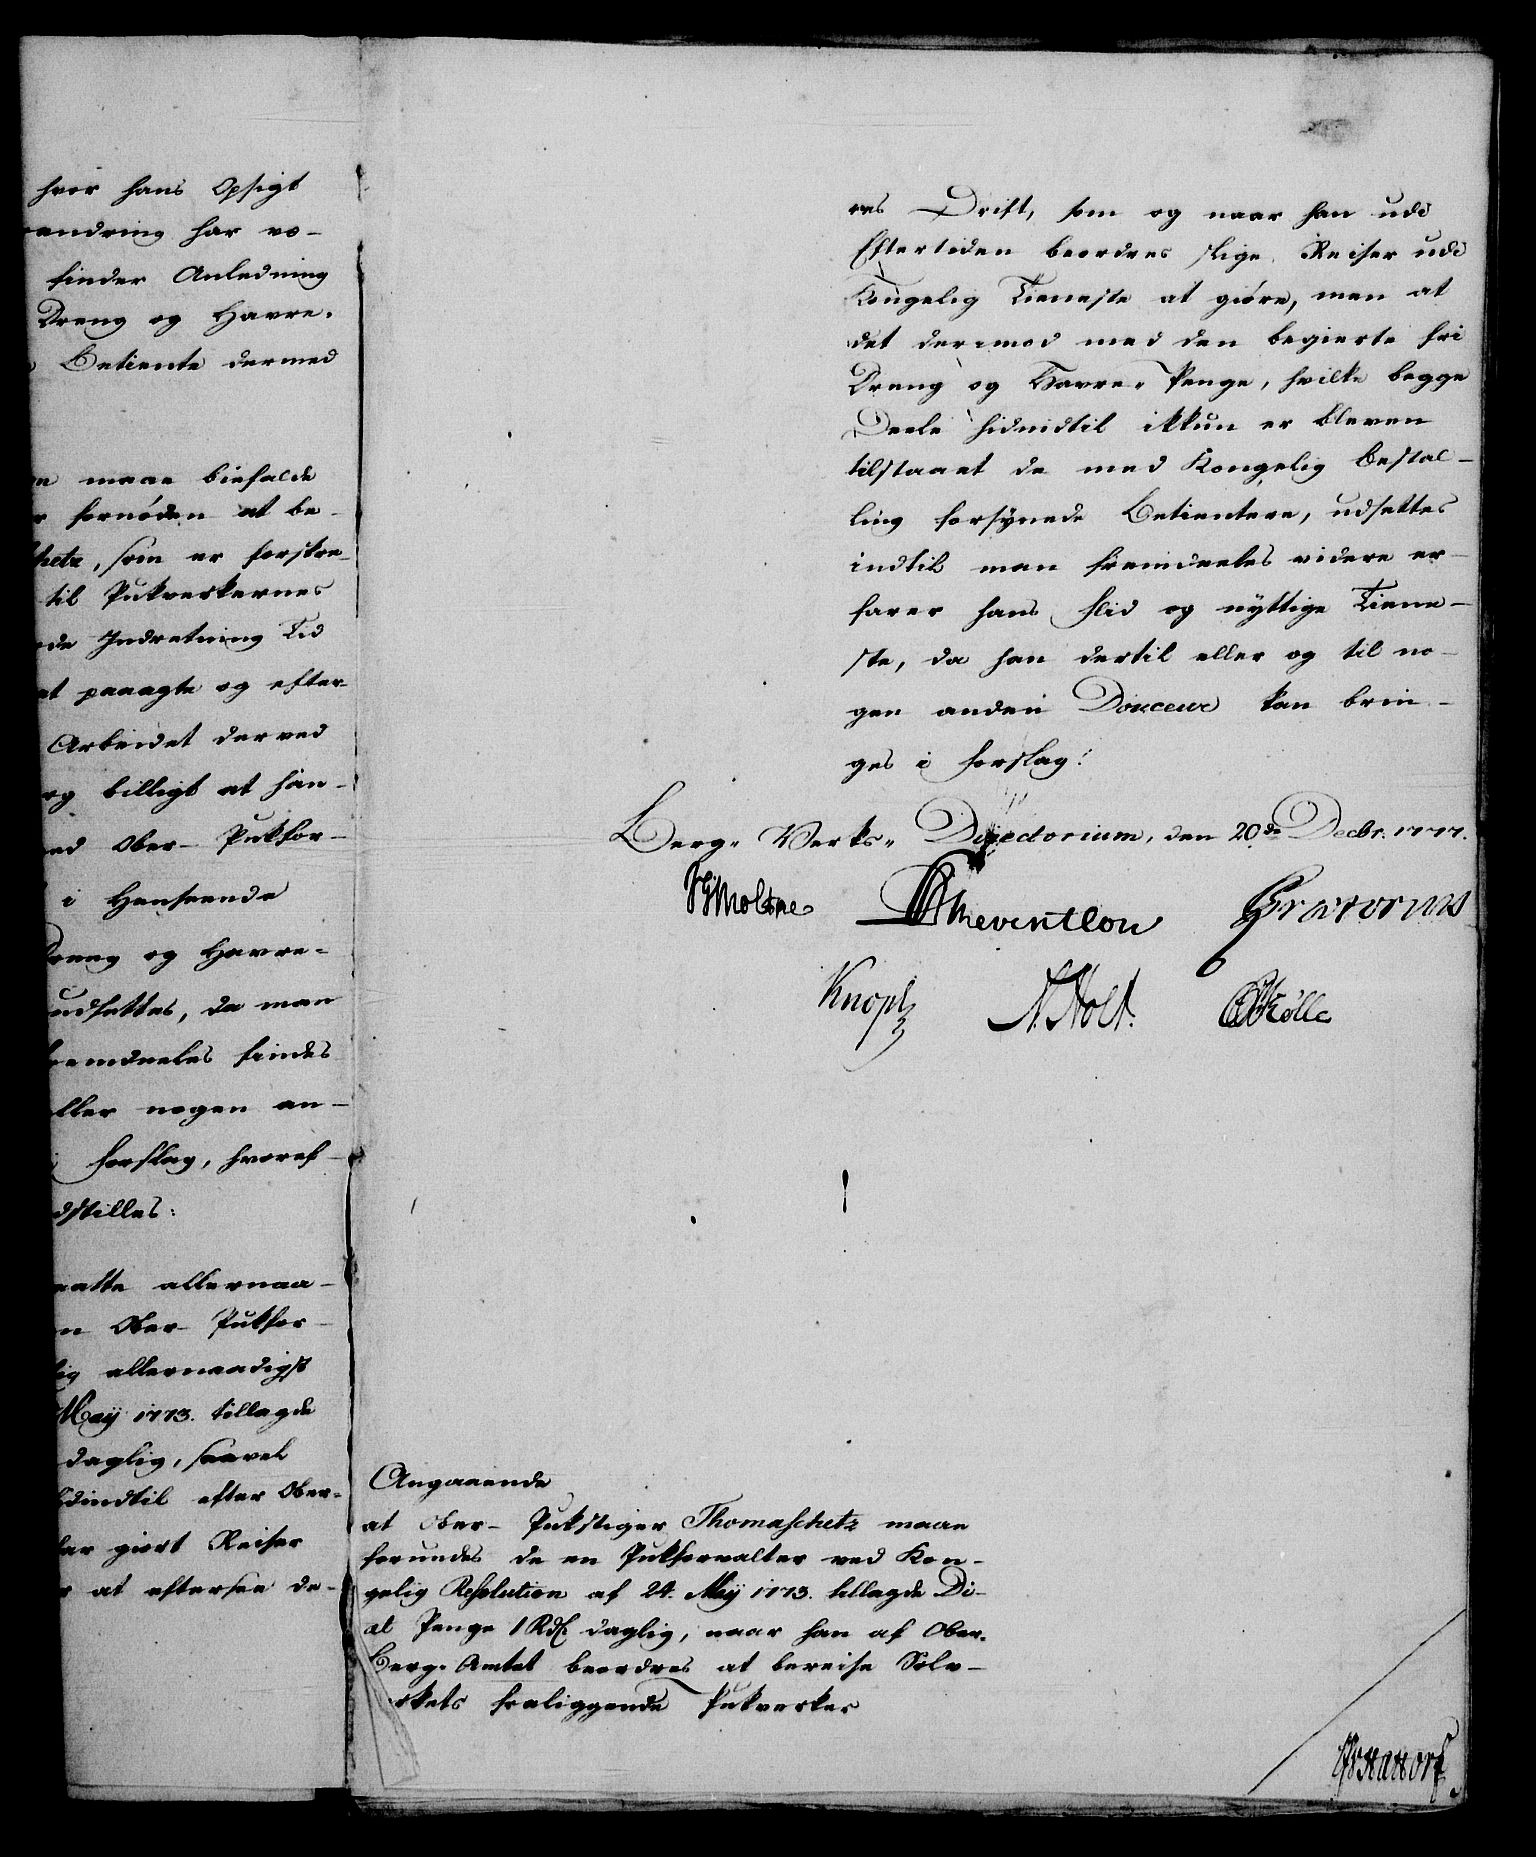 hvor hans Opsigt
andring har vo-
finder Anledning
Dreng og Havre-
Betiente dermed
maae biefalde
fornøden at be-
hetz, som er forskre-
til Pukverkernes
de Indretning Tid
at paaagte og efter-
Arbeidet derved
og billigt at han-
ed Ober-Pukfor-
i Henseende
Dreng og Havre-
udsettes, da man
remdeeles findes
ller nogen an-
Forslag, hvoref-
dstilles:
atte allernaa-
n Ober-Pukfor-
ig allernaadigst
May 1773. tillagde
daglig, saavel
hidindtil efter Ober-
har giort Reiser
at eftersee de-
res Drift, som og naar han udi
Eftertiden beordres slige Reiser udi
Kongelig Tieneste at giøre, men at
det derimod med den begierte fri
Dreng og Havre-Penge, hvilke begge
Deele hidindtil ikkun er bleven
tilstaaet de med Kongelig Bestal-
ling forsynede Betientere, udsettes
indtil man fremdeeles videre er-
farer hans Flid og nyttige Tiene-
ste, da han dertil eller og til no-
gen anden Douceur kan brin-
ges i Forslag.
Berg-Verks-Directorium, den 20de Decbr. 1777.
JGMoltke Reventlou Prætorius
Knoph N. Holt. Kølle
Angaaende
at Ober-Pukstiger Thomaschetz maae
forundes de en Pukforvalter ved Kon-
gelig Resolution af 24. May 1773. tillagde Di-
æt Penge 1 Rdlr. daglig, naar han af Ober-
Berg-Amtet beordres at bereise Sølv-
erkets fraliggende Pukverker